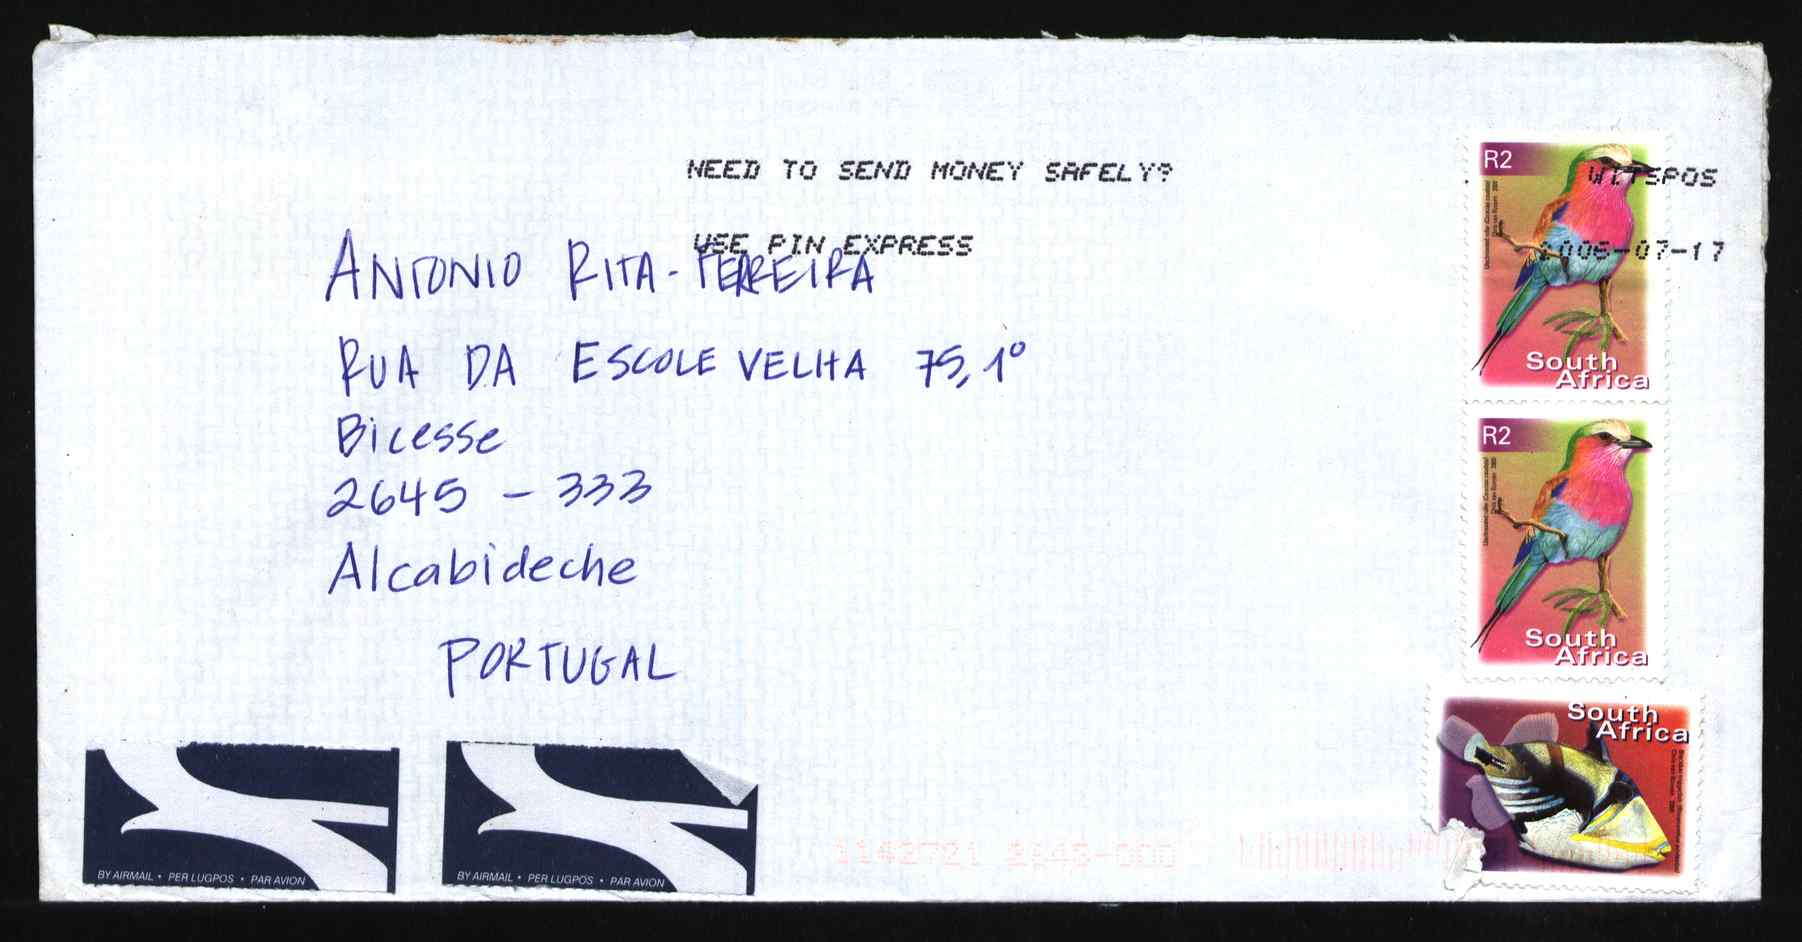 NEED TO SEND MONEY SAFELY?
USE PIN EXPRESS
WITSPOS
2006-07-17
ANTONIO RITA-FERREIRA
RUA DA ESCOLE VELHA 75, 1º
Bicesse
2645 - 333
Alcabideche
PORTUGAL
R2
South
Africa
R2
South
Africa
South
Africa
BY AIRMAIL • PER LUGPOS • PAR AVION
BY AIRMAIL • PER LUGPOS • PAR AVION
1142721 2645-000